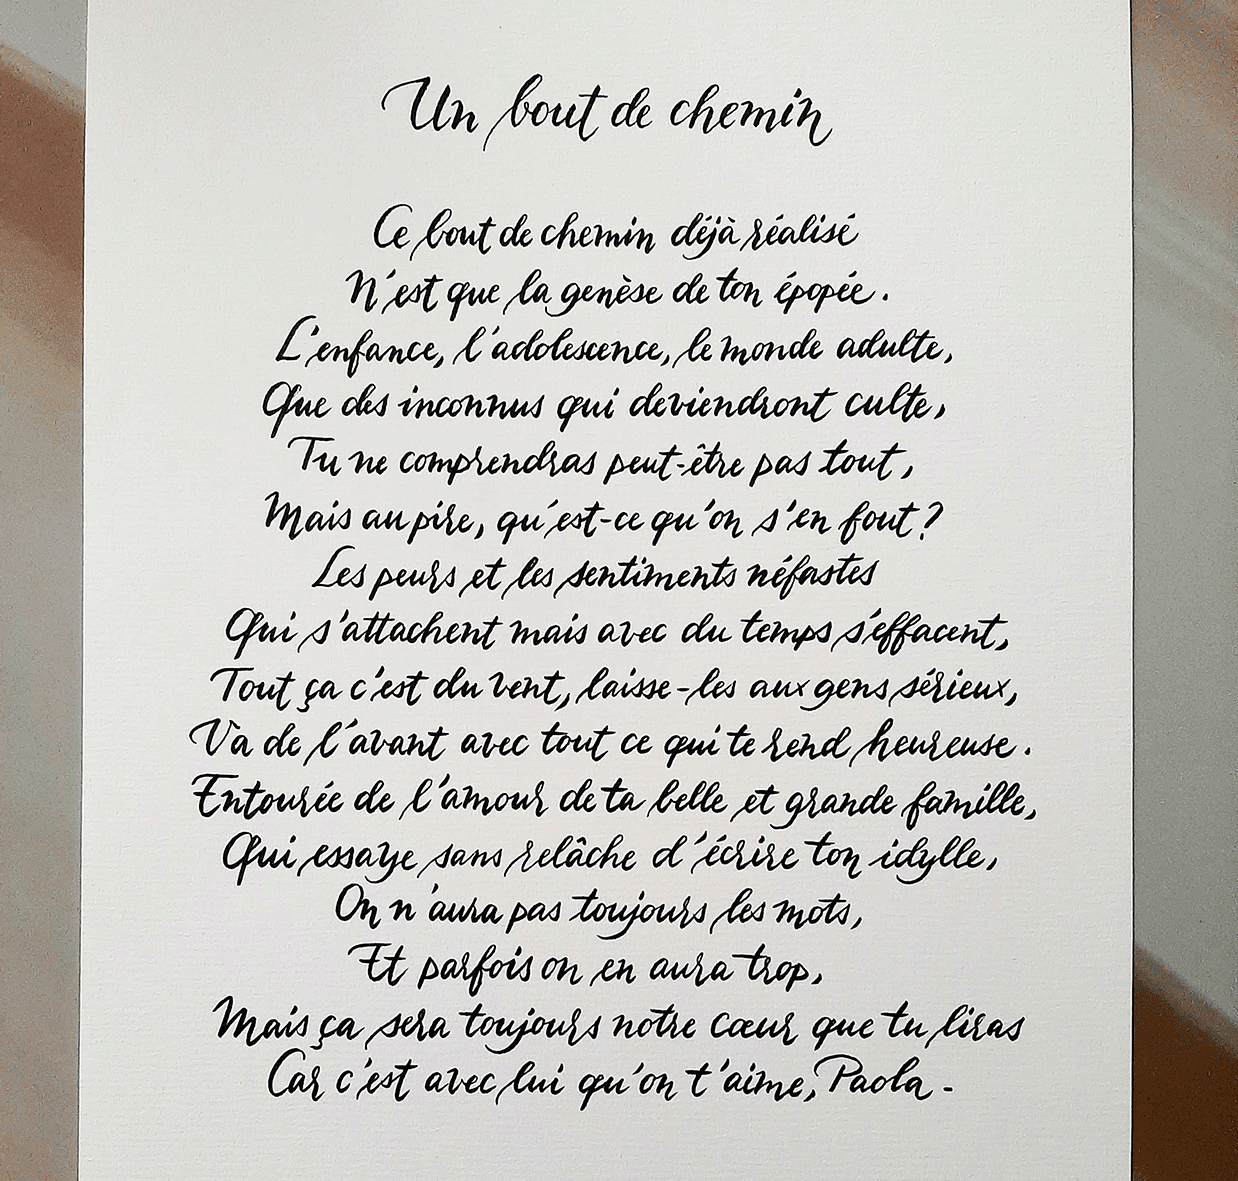 Un bout de chemin
Ce bout de chemin déjà réalisé
N'est que la genèse de ton épopée.
L'enfance, l'adolescence, le monde adulte,
Que des inconnus qui deviendront culte,
Tu ne comprendras peut-être pas tout,
Mais au pire, qu'est-ce qu'on s'en fout?
Les peurs et les sentiments néfastes
Qui s'attachent mais avec du temps s'effacent,
Tout ça c'est du vent, laisse-les aux gens sérieux,
Va de l'avant avec tout ce qui te rend heureuse.
Entourée de l'amour de ta belle et grande famille,
Qui essaye sans relâche d'écrire ton idylle,
On n'aura pas toujours les mots,
Et parfois on en aura trop,
Mais ça sera toujours notre cœur que tu liras
Car c'est avec lui qu'on t'aime, Paola -